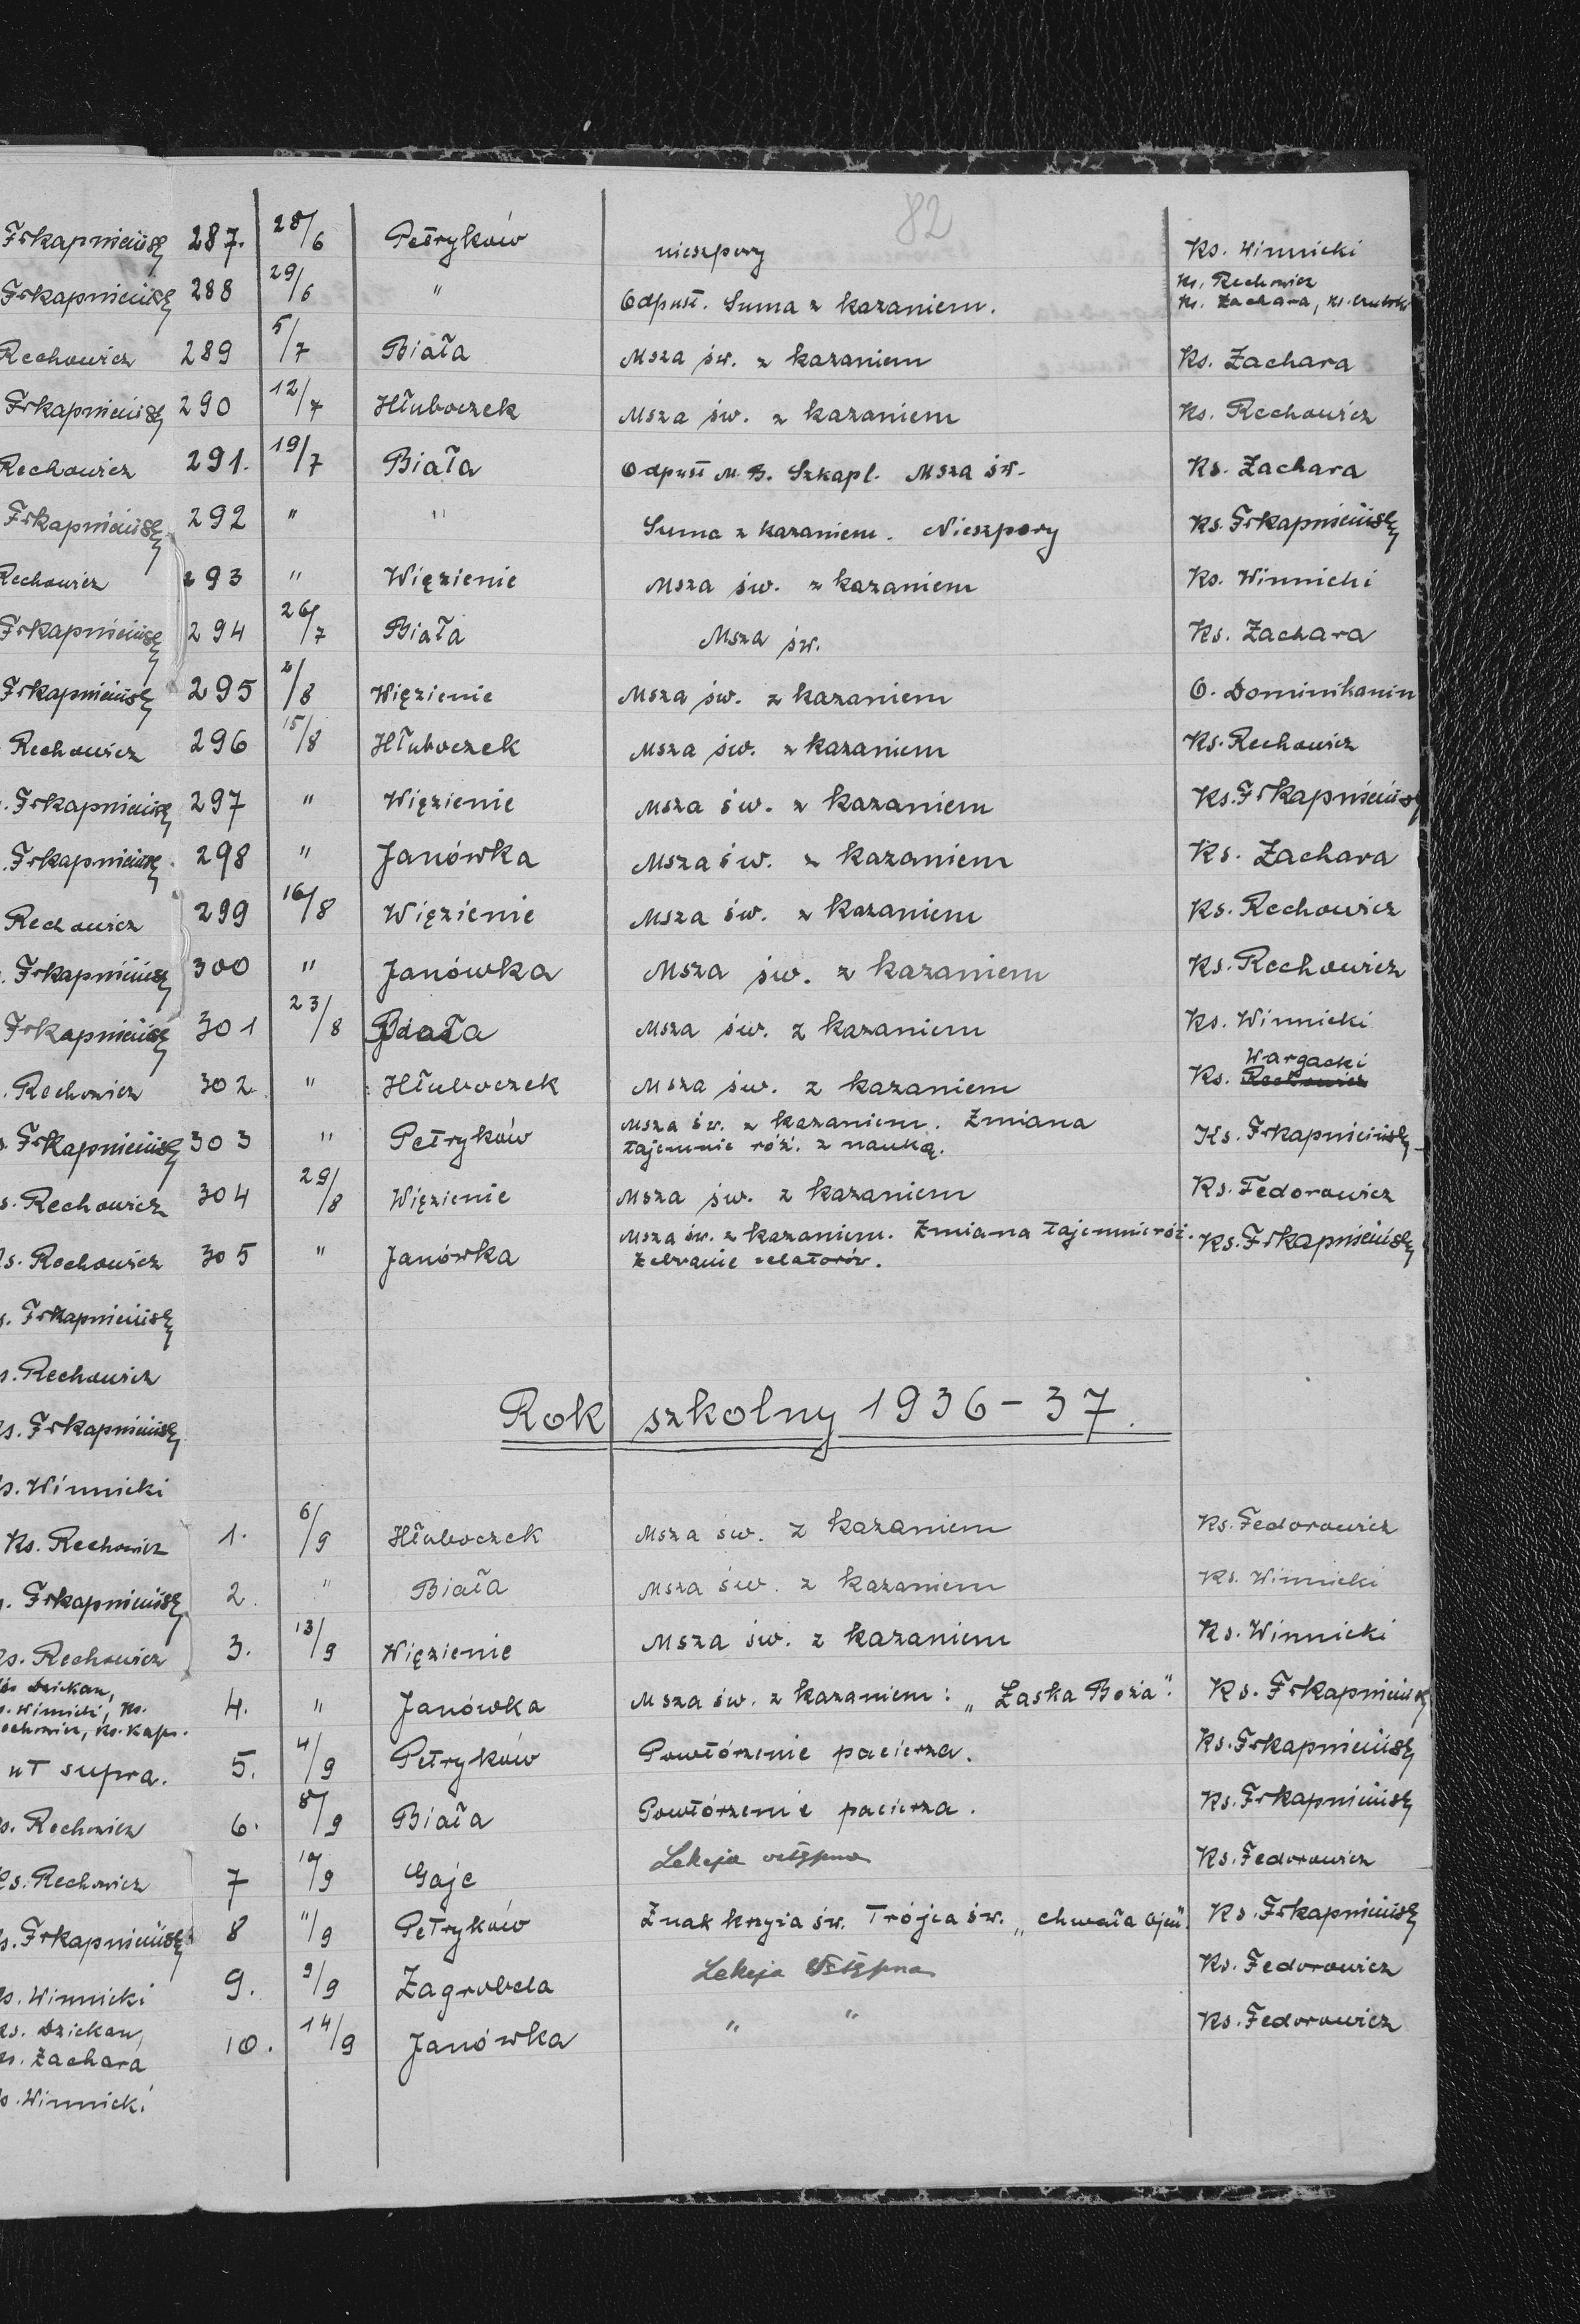 82
Frkapnieiisz 287. 28/6 Petryków nieszpory Ks. Winnicki
Frkapnieiisz 288 29/6 " Odpust. Suma z kazaniem. Ks. Rechowicz
Ks. Zachara, Ks.
Rechowicz 289 5/7 Biała Msza św. z kazaniem Ks. Zachara
290 12/7 Hłuboczek Msza św. z kazaniem Ks. Rechowicz
Rechowicz 291. 19/7 Biała Odpust M. B. Szkapl. Msza św. Ks. Zachara
292 " " Suma z kazaniem. Nieszpory Ks.
Rechowicz 293 " Więzienie Msza św. z kazaniem Ks. Winnicki
294 26/7 Biała Msza św. Ks. Zachara
295 2/8 Więzienie Msza św. z kazaniem O. Dominikanin
Rechowicz 296 15/8 Hłuboczek Msza św. z kazaniem Ks. Rechowicz
297 " Więzienie Msza św. z kazaniem Ks.
298 " Janówka Msza św. z kazaniem Ks. Zachara
Rechowicz 299 16/8 Więzienie Msza św. z kazaniem Ks. Rechowicz
300 " Janówka Msza św. z kazaniem Ks. Rechowicz
301 23/8 Biała Msza św. z kazaniem Ks. Winnicki
Wargacki
Rechowicz 302 " Hłuboczek Msza św. z kazaniem Ks. Rechowicz
303 " Petryków Msza św. z kazaniem. Zmiana Ks.
tajemnic róż. z nauką.
s. Rechowicz 304 29/8 Więzienie Msza św. z kazaniem Ks. Fedorowicz
s. Rechowicz 305 " Janówka Msza św. z kazaniem. Zmiana tajemnic róż. Ks.
Zebranie zelatorów.
s. Rechowicz
Rok szkolny 1936-37.
s. Winnicki
Ks. Rechowicz 1. 6/9 Hłuboczek Msza św. z kazaniem Ks. Fedorowicz
2. " Biała Msza św. z kazaniem Ks. Winnicki
Ks. Rechowicz 3. 13/9 Więzienie Msza św. z kazaniem Ks. Winnicki
Dziekan,
s. Winnicki, Ks. 4. " Janówka Msza św. z kazaniem: „Łaska Boża". Ks.
echowicz, Ks. Kapr.
ut supra. 5. 4/9 Petryków Powtórzenie pacierza. Ks.
s. Rechowicz 6. 8/9 Biała Powtórzenie pacierza. Ks.
Ks. Rechowicz 7 10/9 Gaje Lekcja wstępna Ks. Fedorowicz
8 11/9 Petryków Znak krzyża św. Trójca św. „chwała Ojcu" Ks.
s. Winnicki 9. 9/9 Zagrobela Lekcja Wstępna Ks. Fedorowicz
Ks. Dziekan, 10. 14/9 Janówka " " Ks. Fedorowicz
Ks. Zachara
s. Winnicki